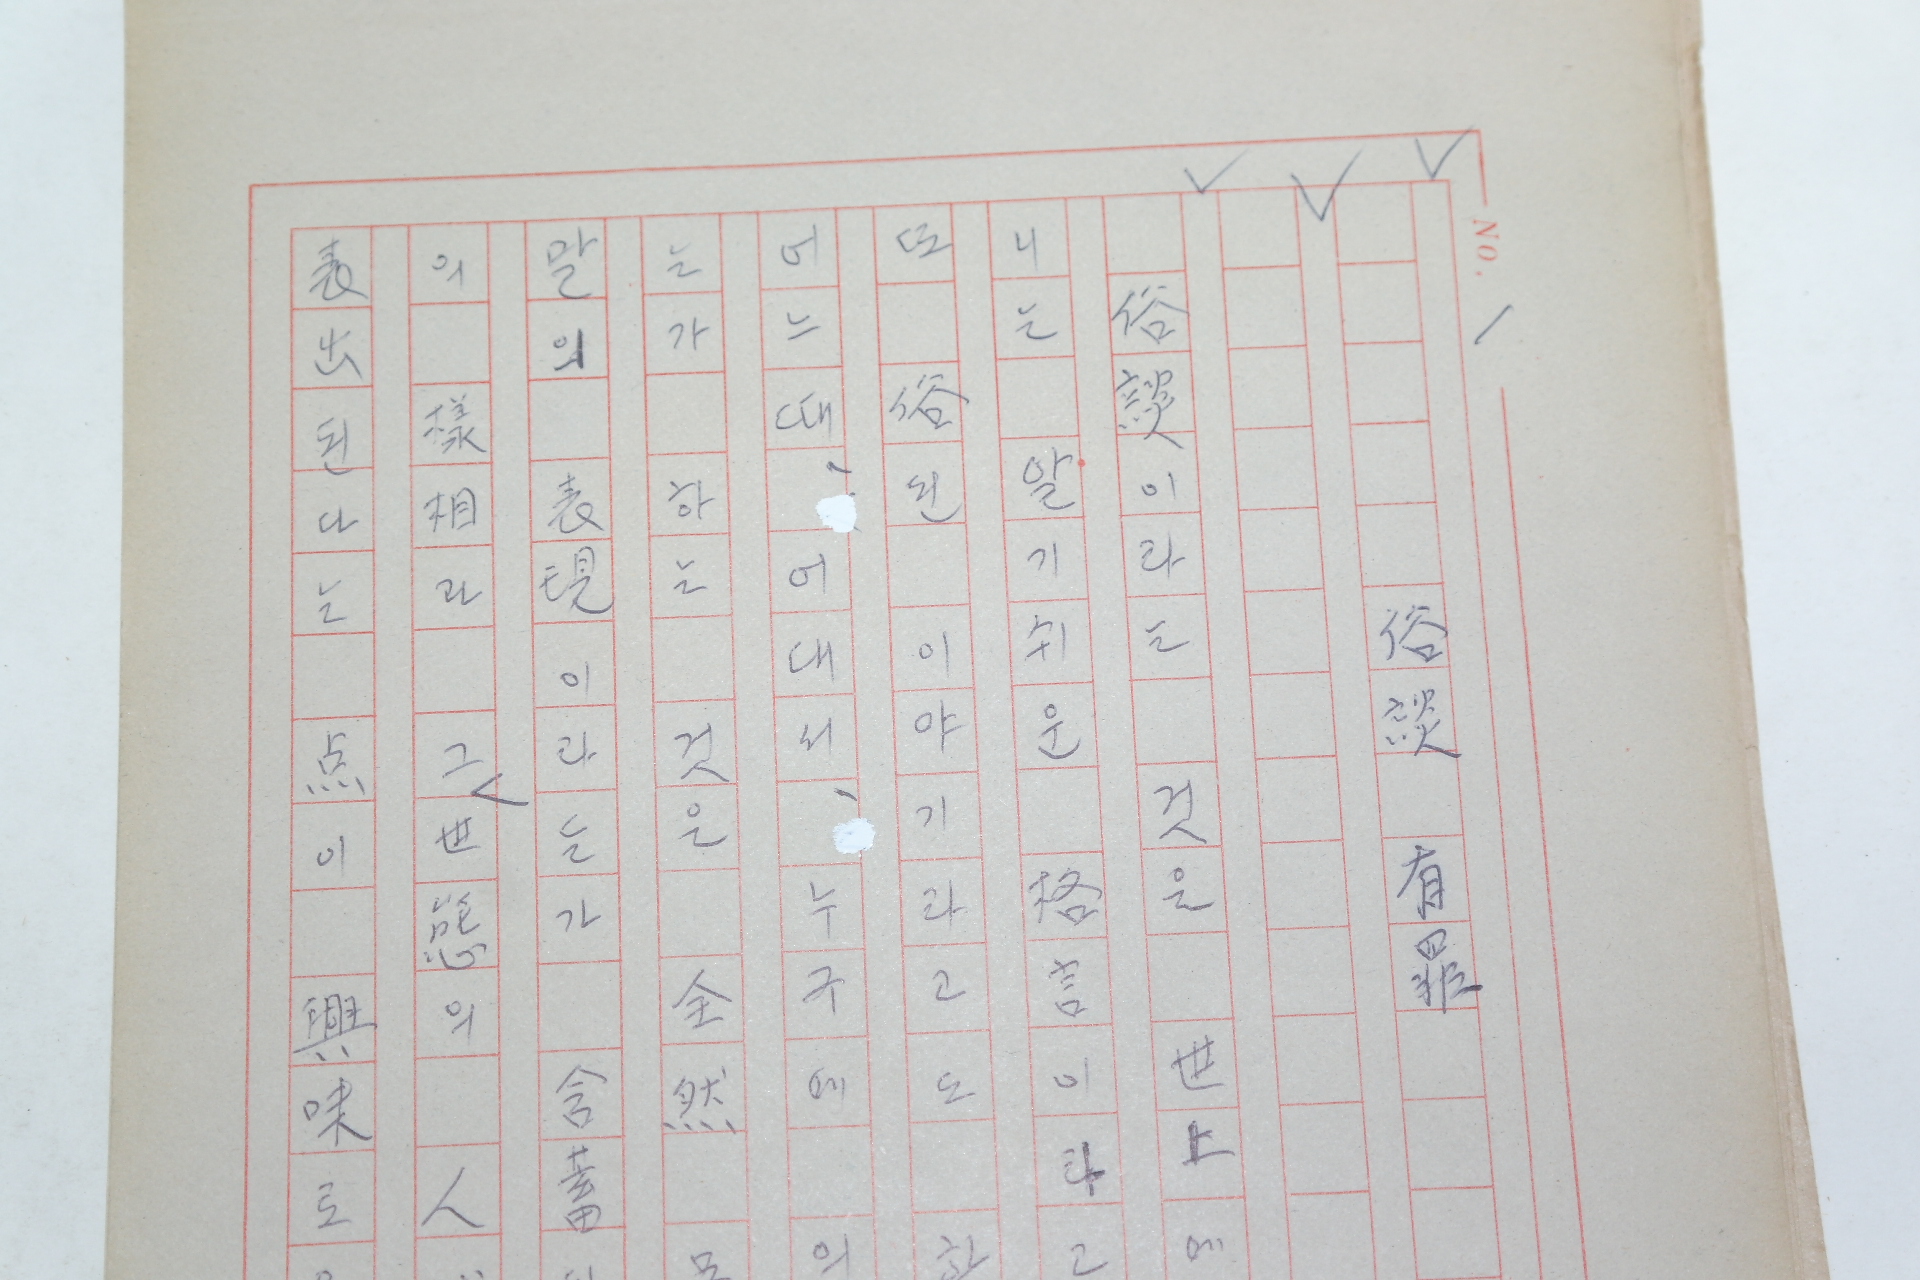 No. 1
俗談 有罪
俗談이라는 것은 世上에
니는 알기쉬운 格言이라고
또 俗된 이야기라고도 하
어느때, 어대서, 누구에 의
는가 하는 것은 全然
말의 表現이라는가 含蓄
의 樣相과 그世態의 人
表出된다는 点이 興味로